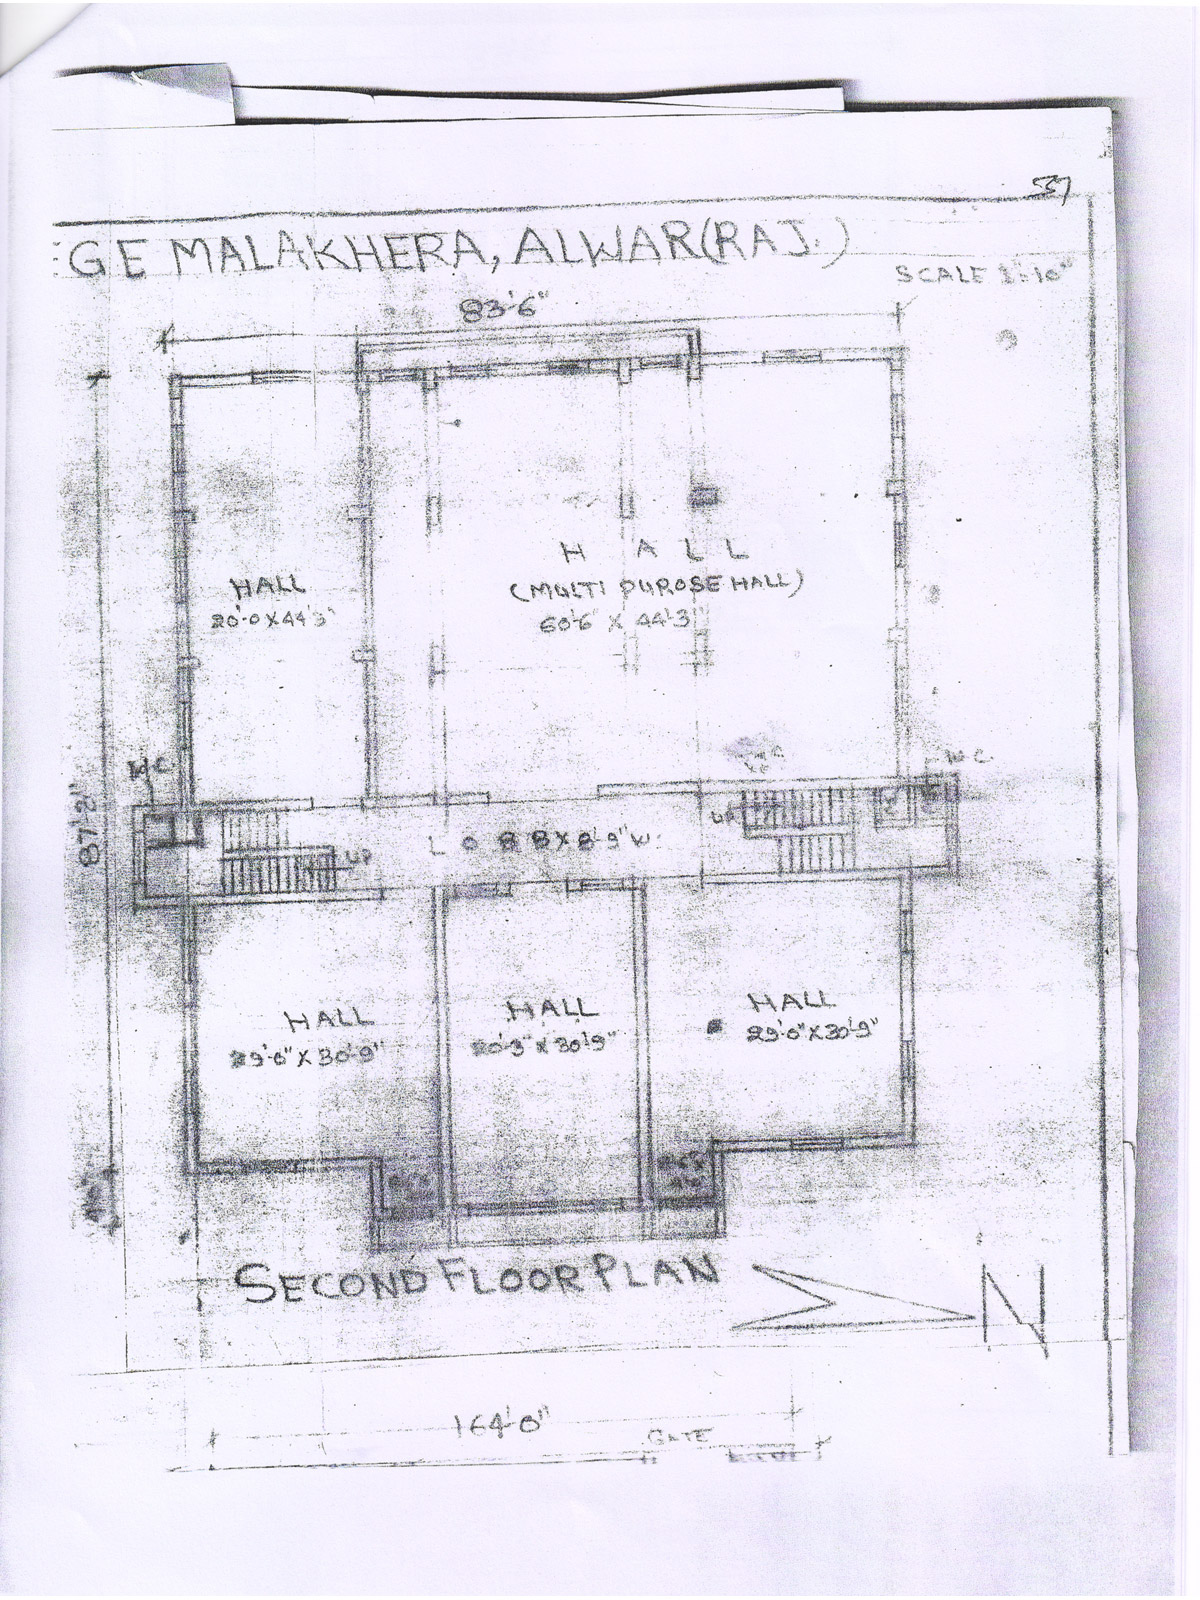 37
EGE MALAKHERA, ALWAR (RAJ.)
SCALE 1:10"
83'-6"
HALL
20'-0 X 44'3"
HALL
(MULTI PUROSE HALL)
60'6" X 44'-3"
87'-2"
W.C
W.C.
UP
UP
L O B B Y 8'-9" W.
HALL
29'-0" X 30'-9"
HALL
20'-3" X 30'-9"
HALL
29'-0" X 30'-9"
SECOND FLOOR PLAN
N
164'-0"
GATE